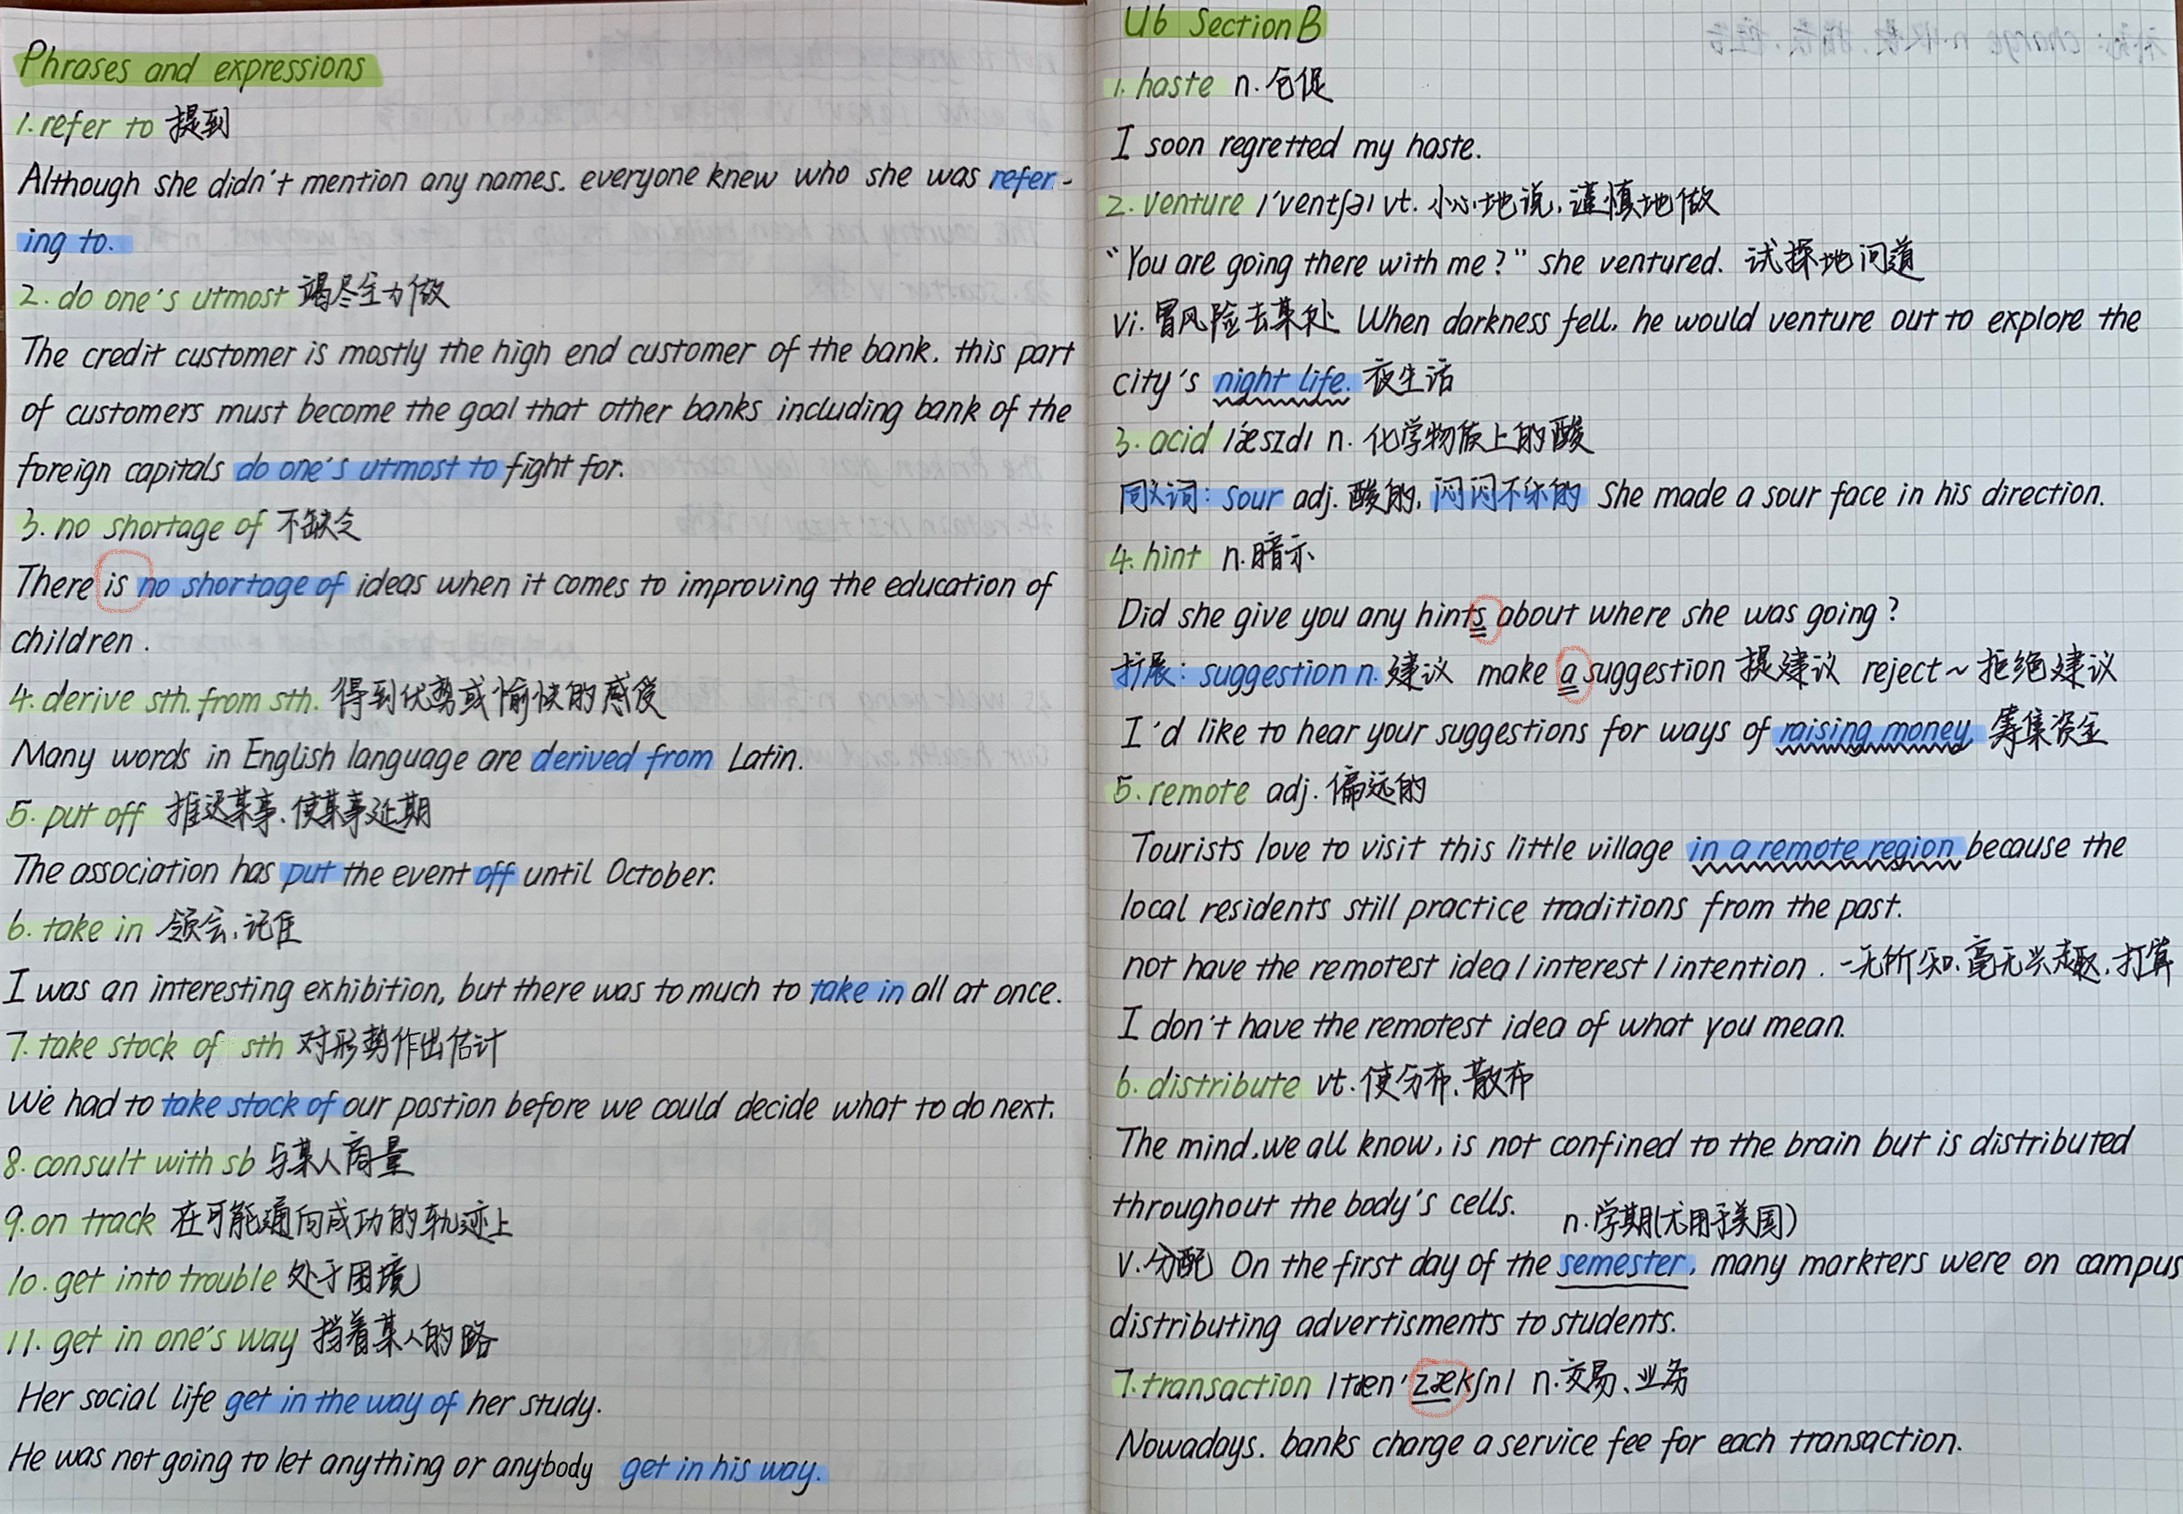 Phrases and expressions
1. refer to 提到
Although she didn't mention any names. everyone knew who she was refer-
ing to.
2. do one's utmost 竭尽全力做
The credit customer is mostly the high end customer of the bank. this part
of customers must become the goal that other banks including bank of the
foreign capitals do one's utmost to fight for.
3. no shortage of 不缺乏
There is no shortage of ideas when it comes to improving the education of
children.
4. derive sth. from sth. 得到优势或愉快的感受
Many words in English language are derived from Latin.
5. put off 推迟某事、使某事延期
The association has put the event off until October.
6. take in 领会,记住
I was an interesting exhibition, but there was to much to take in all at once.
7. take stock of sth 对形势作出估计
We had to take stock of our postion before we could decide what to do next.
8. consult with sb 与某人商量
9. on track 在可能通向成功的轨迹上
10. get into trouble 处于困境
11. get in one's way 挡着某人的路
Her social life get in the way of her study.
He was not going to let anything or anybody get in his way.
U6 Section B
1. haste n. 仓促
I soon regretted my haste.
2. venture /'ventʃə/ vt. 小心地说,谨慎地做
"You are going there with me?" she ventured. 试探地问道
vi. 冒风险去某处 When darkness fell, he would venture out to explore the
city's night life. 夜生活
3. acid /'æsɪd/ n. 化学物质上的酸
同义词: sour adj. 酸的, 闷闷不乐的 She made a sour face in his direction.
4. hint n. 暗示
Did she give you any hints about where she was going?
扩展: suggestion n. 建议 make a suggestion 提建议 reject ~ 拒绝建议
I'd like to hear your suggestions for ways of raising money. 筹集资金
5. remote adj. 偏远的
Tourists love to visit this little village in a remote region because the
local residents still practice traditions from the past.
not have the remotest idea / interest / intention. 一无所知、毫无兴趣、打算
I don't have the remotest idea of what you mean.
6. distribute vt. 使分布、散布
The mind, we all know, is not confined to the brain but is distributed
throughout the body's cells.
n. 学期(尤用于美国)
v. 分配 On the first day of the semester, many markters were on campus
distributing advertisments to students.
7. transaction /tæn'zækʃn/ n. 交易、业务
Nowadays. banks charge a service fee for each transaction.